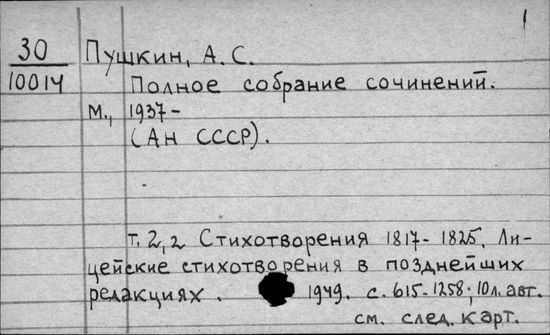 1
30 Пушкин, А. С.
10014 Полное собрание сочинений.
М., 1937-
(Ан СССР).
т. 2,2 Стихотворения 1817-1825. Ли-
цейские стихотворения в позднейших
редакциях. 1949. с. 615-1258; 10 л. авт.
см. след. карт.